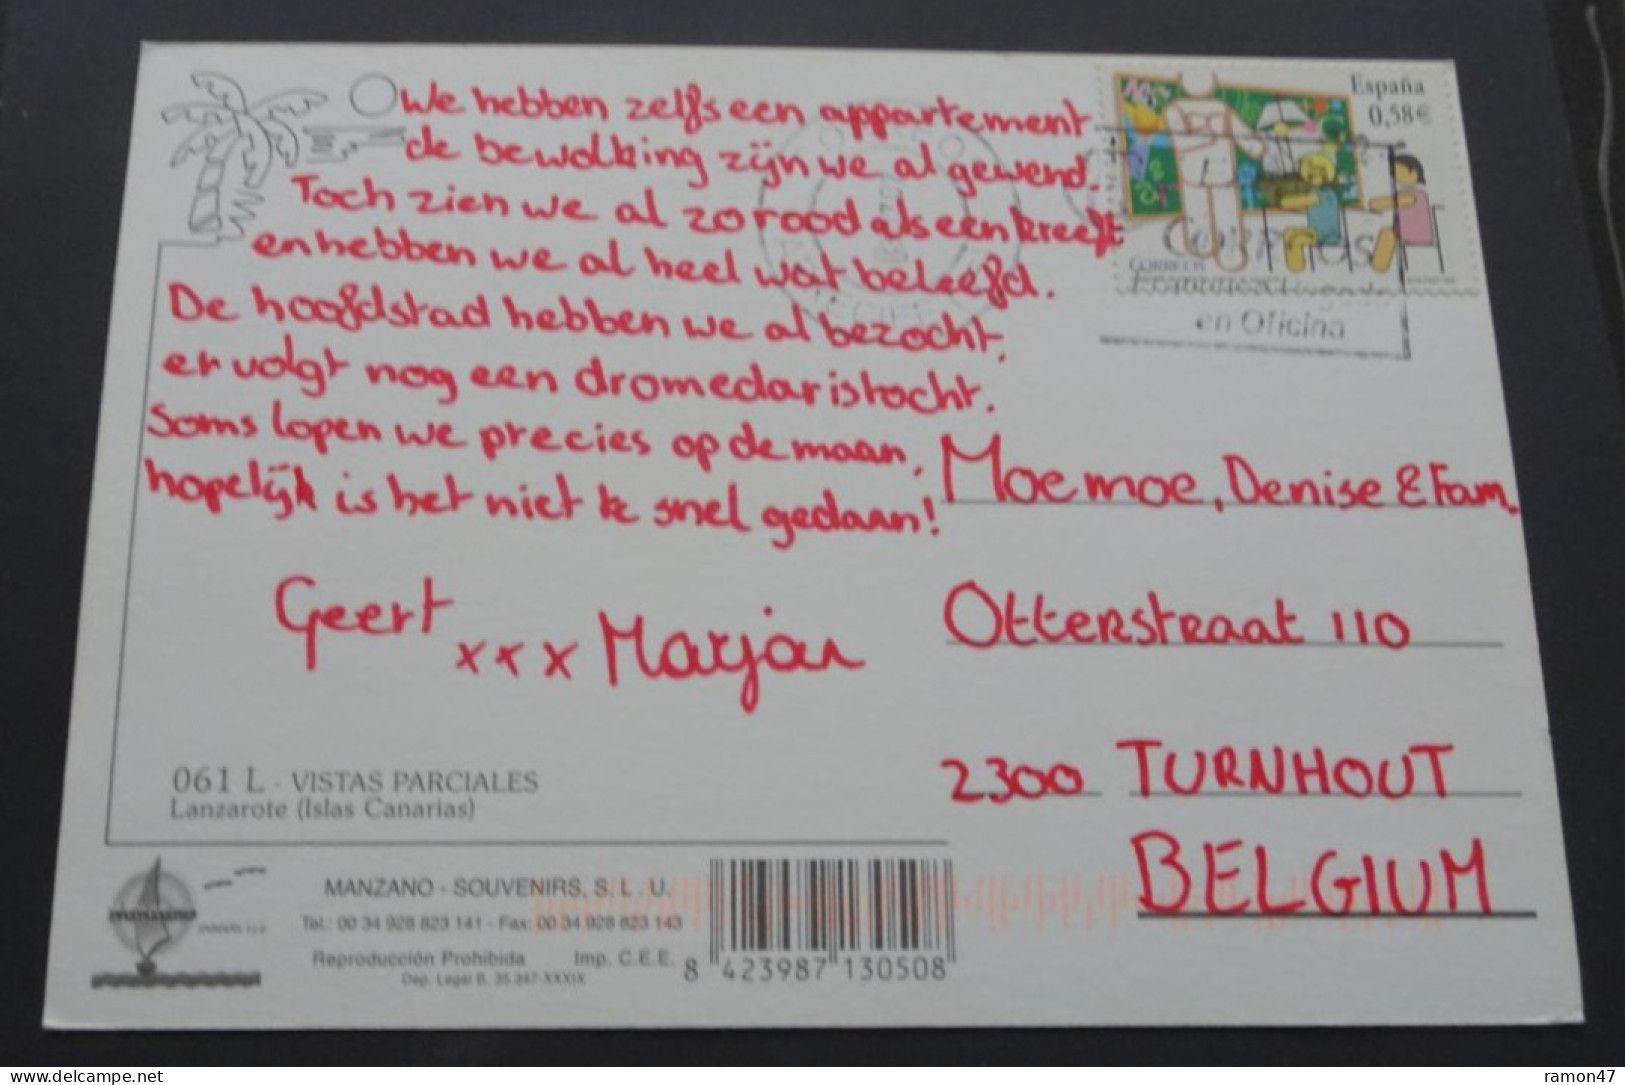 We hebben zelfs een appartement
de bewolking zijn we al gewend.
Toch zien we al zo rood als een kreeft
en hebben we al heel wat beleefd.
De hoofdstad hebben we al bezocht,
er volgt nog een dromedaristocht.
Soms lopen we precies op de maan,
hopelijk is het niet te snel gedaan!
Geert xxx Marjan
España
0,58€
CORREOS
en Oficina
Moemoe, Denise & Fam.
Otterstraat 110
2300 TURNHOUT
BELGIUM
061 L - VISTAS PARCIALES
Lanzarote (Islas Canarias)
MANZANO - SOUVENIRS, S. L. U.
Tel.: 00 34 928 823 141 - Fax: 00 34 928 823 143
Reproducción Prohibida Imp. C.E.E.
Dep. Legal B. 35.347-XXXIX
8 423987 130508
delcampe.net
ramon47